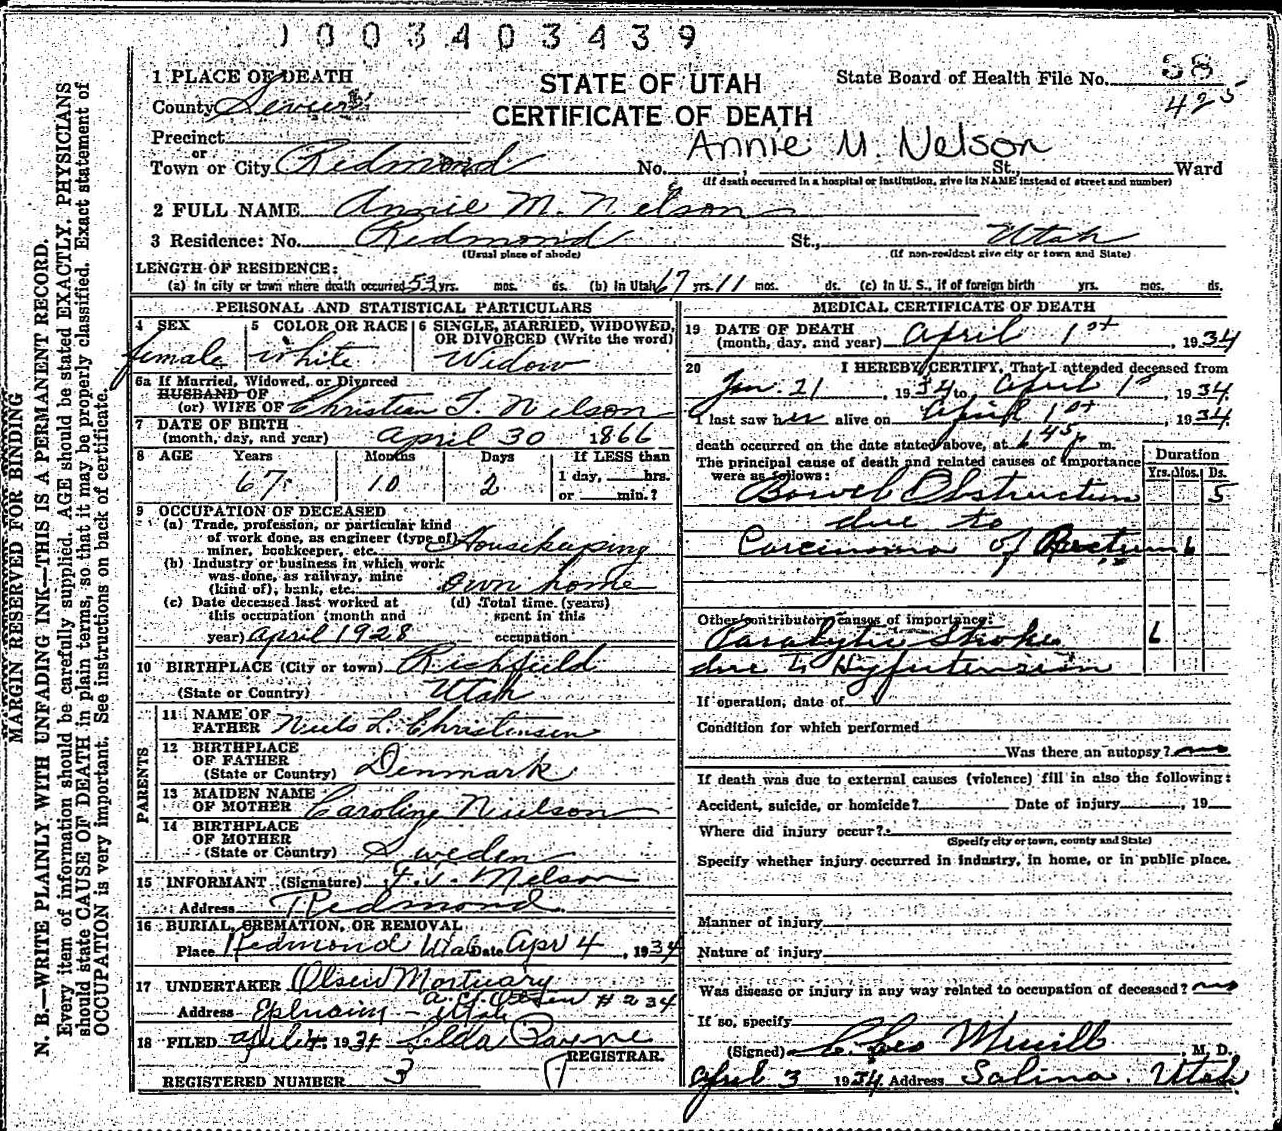 1003403439
1 PLACE OF DEATH
STATE OF UTAH
State Board of Health File No. 38
County Sevier
CERTIFICATE OF DEATH
425
Precinct
Annie M. Nelson
or
Town or City Redmond No. , St., Ward
(If death occurred in a hospital or institution, give its NAME instead of street and number)
2 FULL NAME Annie M. Nelson
3 Residence: No. Redmond St., Utah
(Usual place of abode) (If non-resident give city or town and State)
LENGTH OF RESIDENCE:
(a) In city or town where death occurred 53 yrs. mos. ds. (b) in Utah 67 yrs. 11 mos. ds. (c) In U. S., if of foreign birth yrs. mos. ds.
PERSONAL AND STATISTICAL PARTICULARS
4 SEX 5 COLOR OR RACE 6 SINGLE, MARRIED, WIDOWED, OR DIVORCED (Write the word)
female white Widow
6a If Married, Widowed, or Divorced
HUSBAND OF
(or) WIFE OF Christian T. Nelson
7 DATE OF BIRTH
(month, day, and year) April 30 1866
8 AGE Years Months Days If LESS than
67 10 2 1 day, hrs.
or min.?
9 OCCUPATION OF DECEASED
(a) Trade, profession, or particular kind
of work done, as engineer (type of)
miner, bookkeeper, etc. Housekeeping
(b) Industry or business in which work
was done, as railway, mine
(kind of), bank, etc. own home
(c) Date deceased last worked at (d) Total time (years)
this occupation (month and spent in this
year) April 1928 occupation
10 BIRTHPLACE (City or town) Richfield
(State or Country) Utah
PARENTS
11 NAME OF
FATHER Niels L. Christensen
12 BIRTHPLACE
OF FATHER
(State or Country) Denmark
13 MAIDEN NAME
OF MOTHER Caroline Nielson
14 BIRTHPLACE
OF MOTHER
(State or Country) Sweden
15 INFORMANT (Signature) Nelson
Address Redmond
16 BURIAL, CREMATION, OR REMOVAL
Place Redmond Utah Date Apr 4, 1934
17 UNDERTAKER Olsen Mortuary
Olsen #234
Address Ephraim - Utah
18 FILED April 4, 1934 Selda Payne
REGISTRAR.
REGISTERED NUMBER 3
MEDICAL CERTIFICATE OF DEATH
19 DATE OF DEATH
(month, day, and year) April 1st, 1934
20 I HEREBY CERTIFY, That I attended deceased from
Jan. 21, 1934 to April 1st, 1934.
I last saw her alive on April 1st, 1934.
death occurred on the date stated above, at 6 45 p m.
The principal cause of death and related causes of importance
were as follows: Duration
Yrs. Mos. Ds.
Bowel Obstruction 5
due to
Carcinoma of Rectum 6
Other contributory causes of importance:
Paralytic Stroke 6
due to Hypertension
If operation, date of
Condition for which performed
Was there an autopsy? no
If death was due to external causes (violence) fill in also the following:
Accident, suicide, or homicide? Date of injury , 19
Where did injury occur?
(Specify city or town, county and State)
Specify whether injury occurred in industry, in home, or in public place.
Manner of injury
Nature of injury
Was disease or injury in any way related to occupation of deceased? no
If so, specify
(Signed) Merrill, M. D.
April 3 1934 Address Salina, Utah
MARGIN RESERVED FOR BINDING
N. B.—WRITE PLAINLY, WITH UNFADING INK—THIS IS A PERMANENT RECORD.
Every item of information should be carefully supplied. AGE should be stated EXACTLY. PHYSICIANS
should state CAUSE OF DEATH in plain terms, so that it may be properly classified. Exact statement of
OCCUPATION is very important. See instructions on back of certificate.